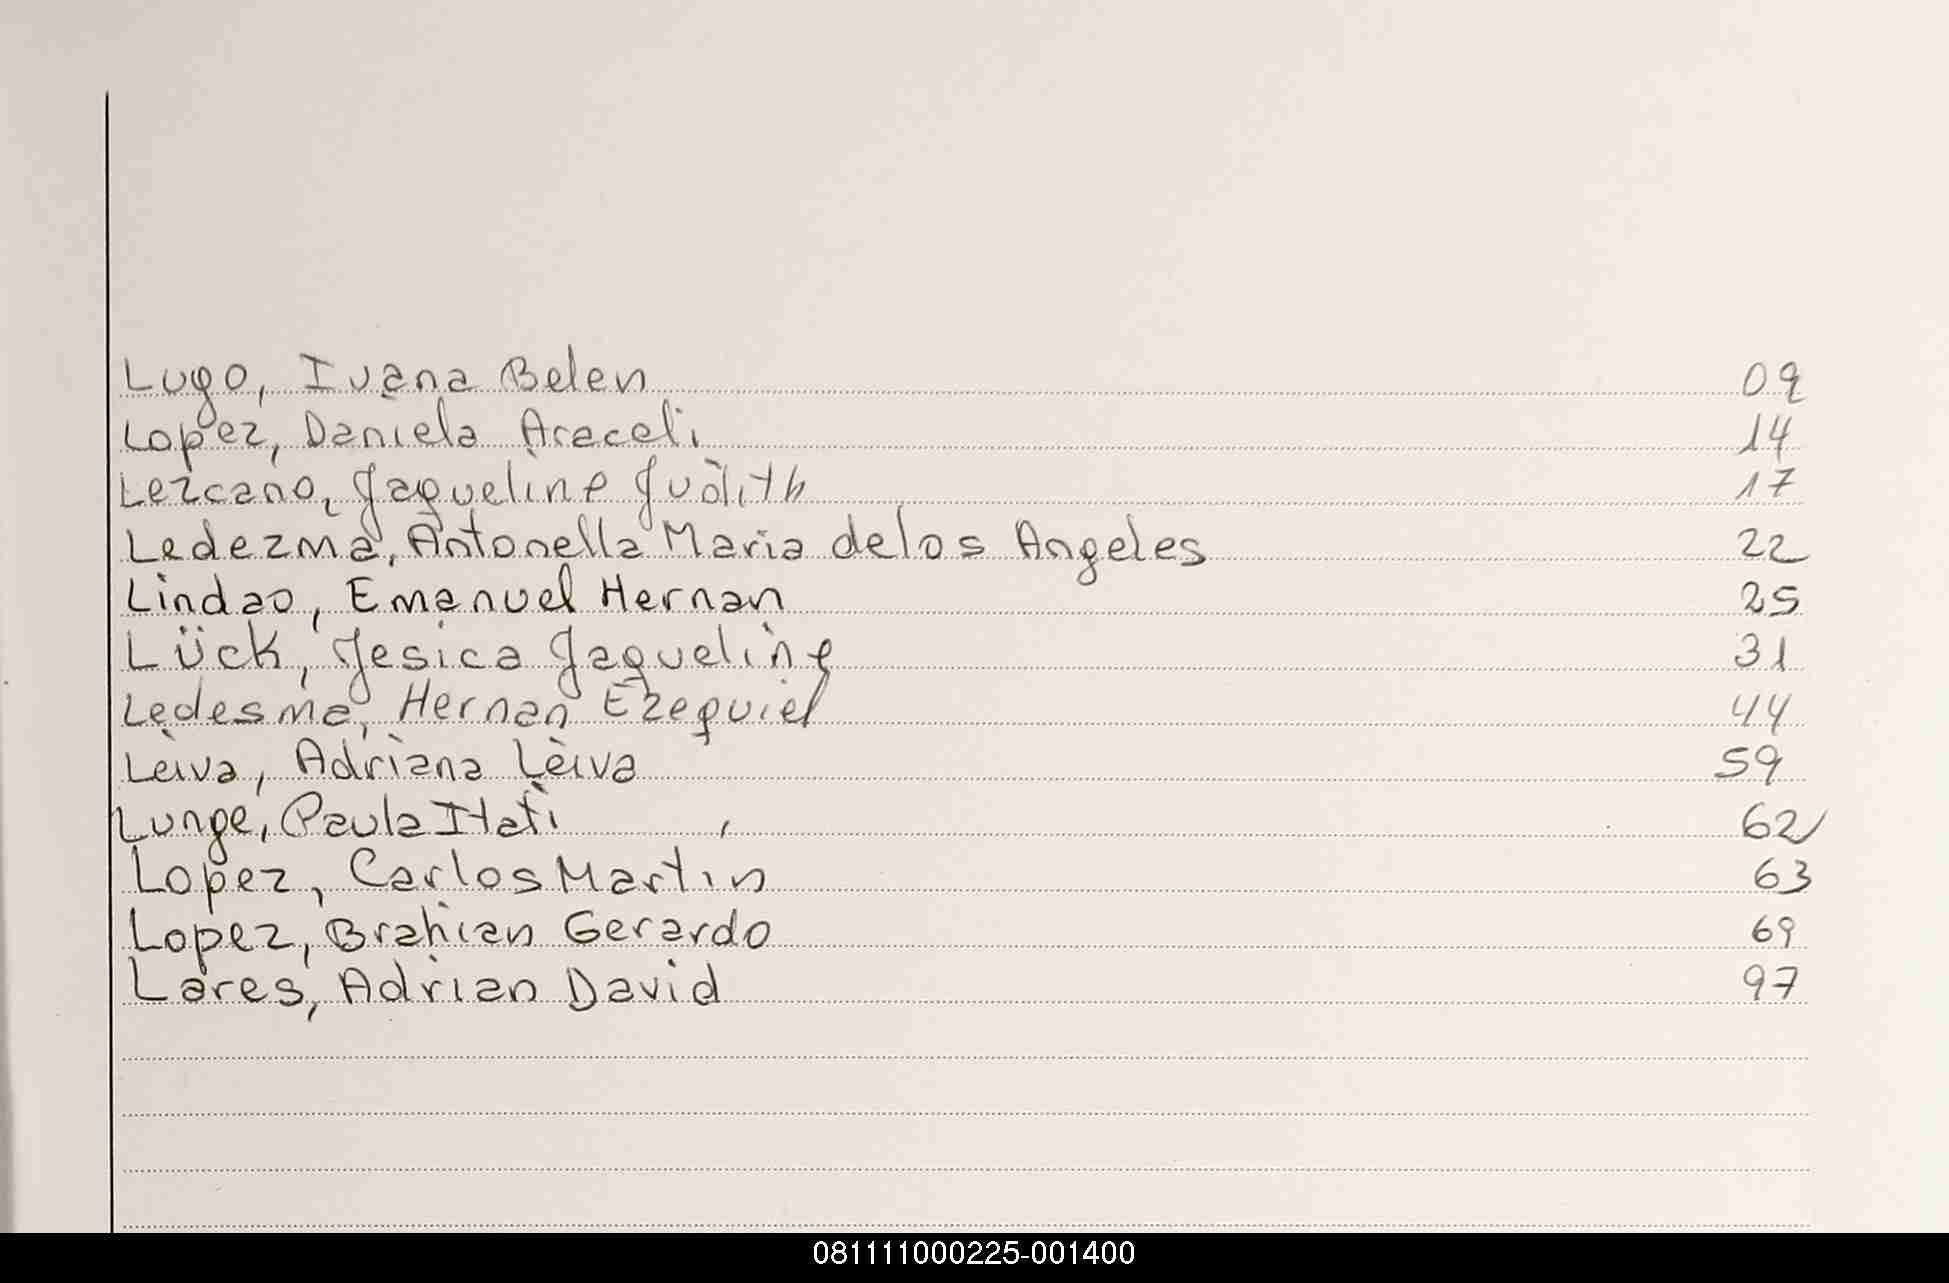 Lugo, Ivana Belen 09
Lopez, Daniela Araceli 14
Lezcano, Jaqueline Judith 17
Ledezma, Antonella Maria de los Angeles 22
Lindao, Emanuel Hernan 25
Lück, Jesica Jaqueline 31
Ledesma, Hernan Ezequiel 44
Leiva, Adriana Leiva 59
Lunge, Paula Itati 62
Lopez, Carlos Martin 63
Lopez, Brahian Gerardo 69
Lares, Adrian David 97
081111000225-001400